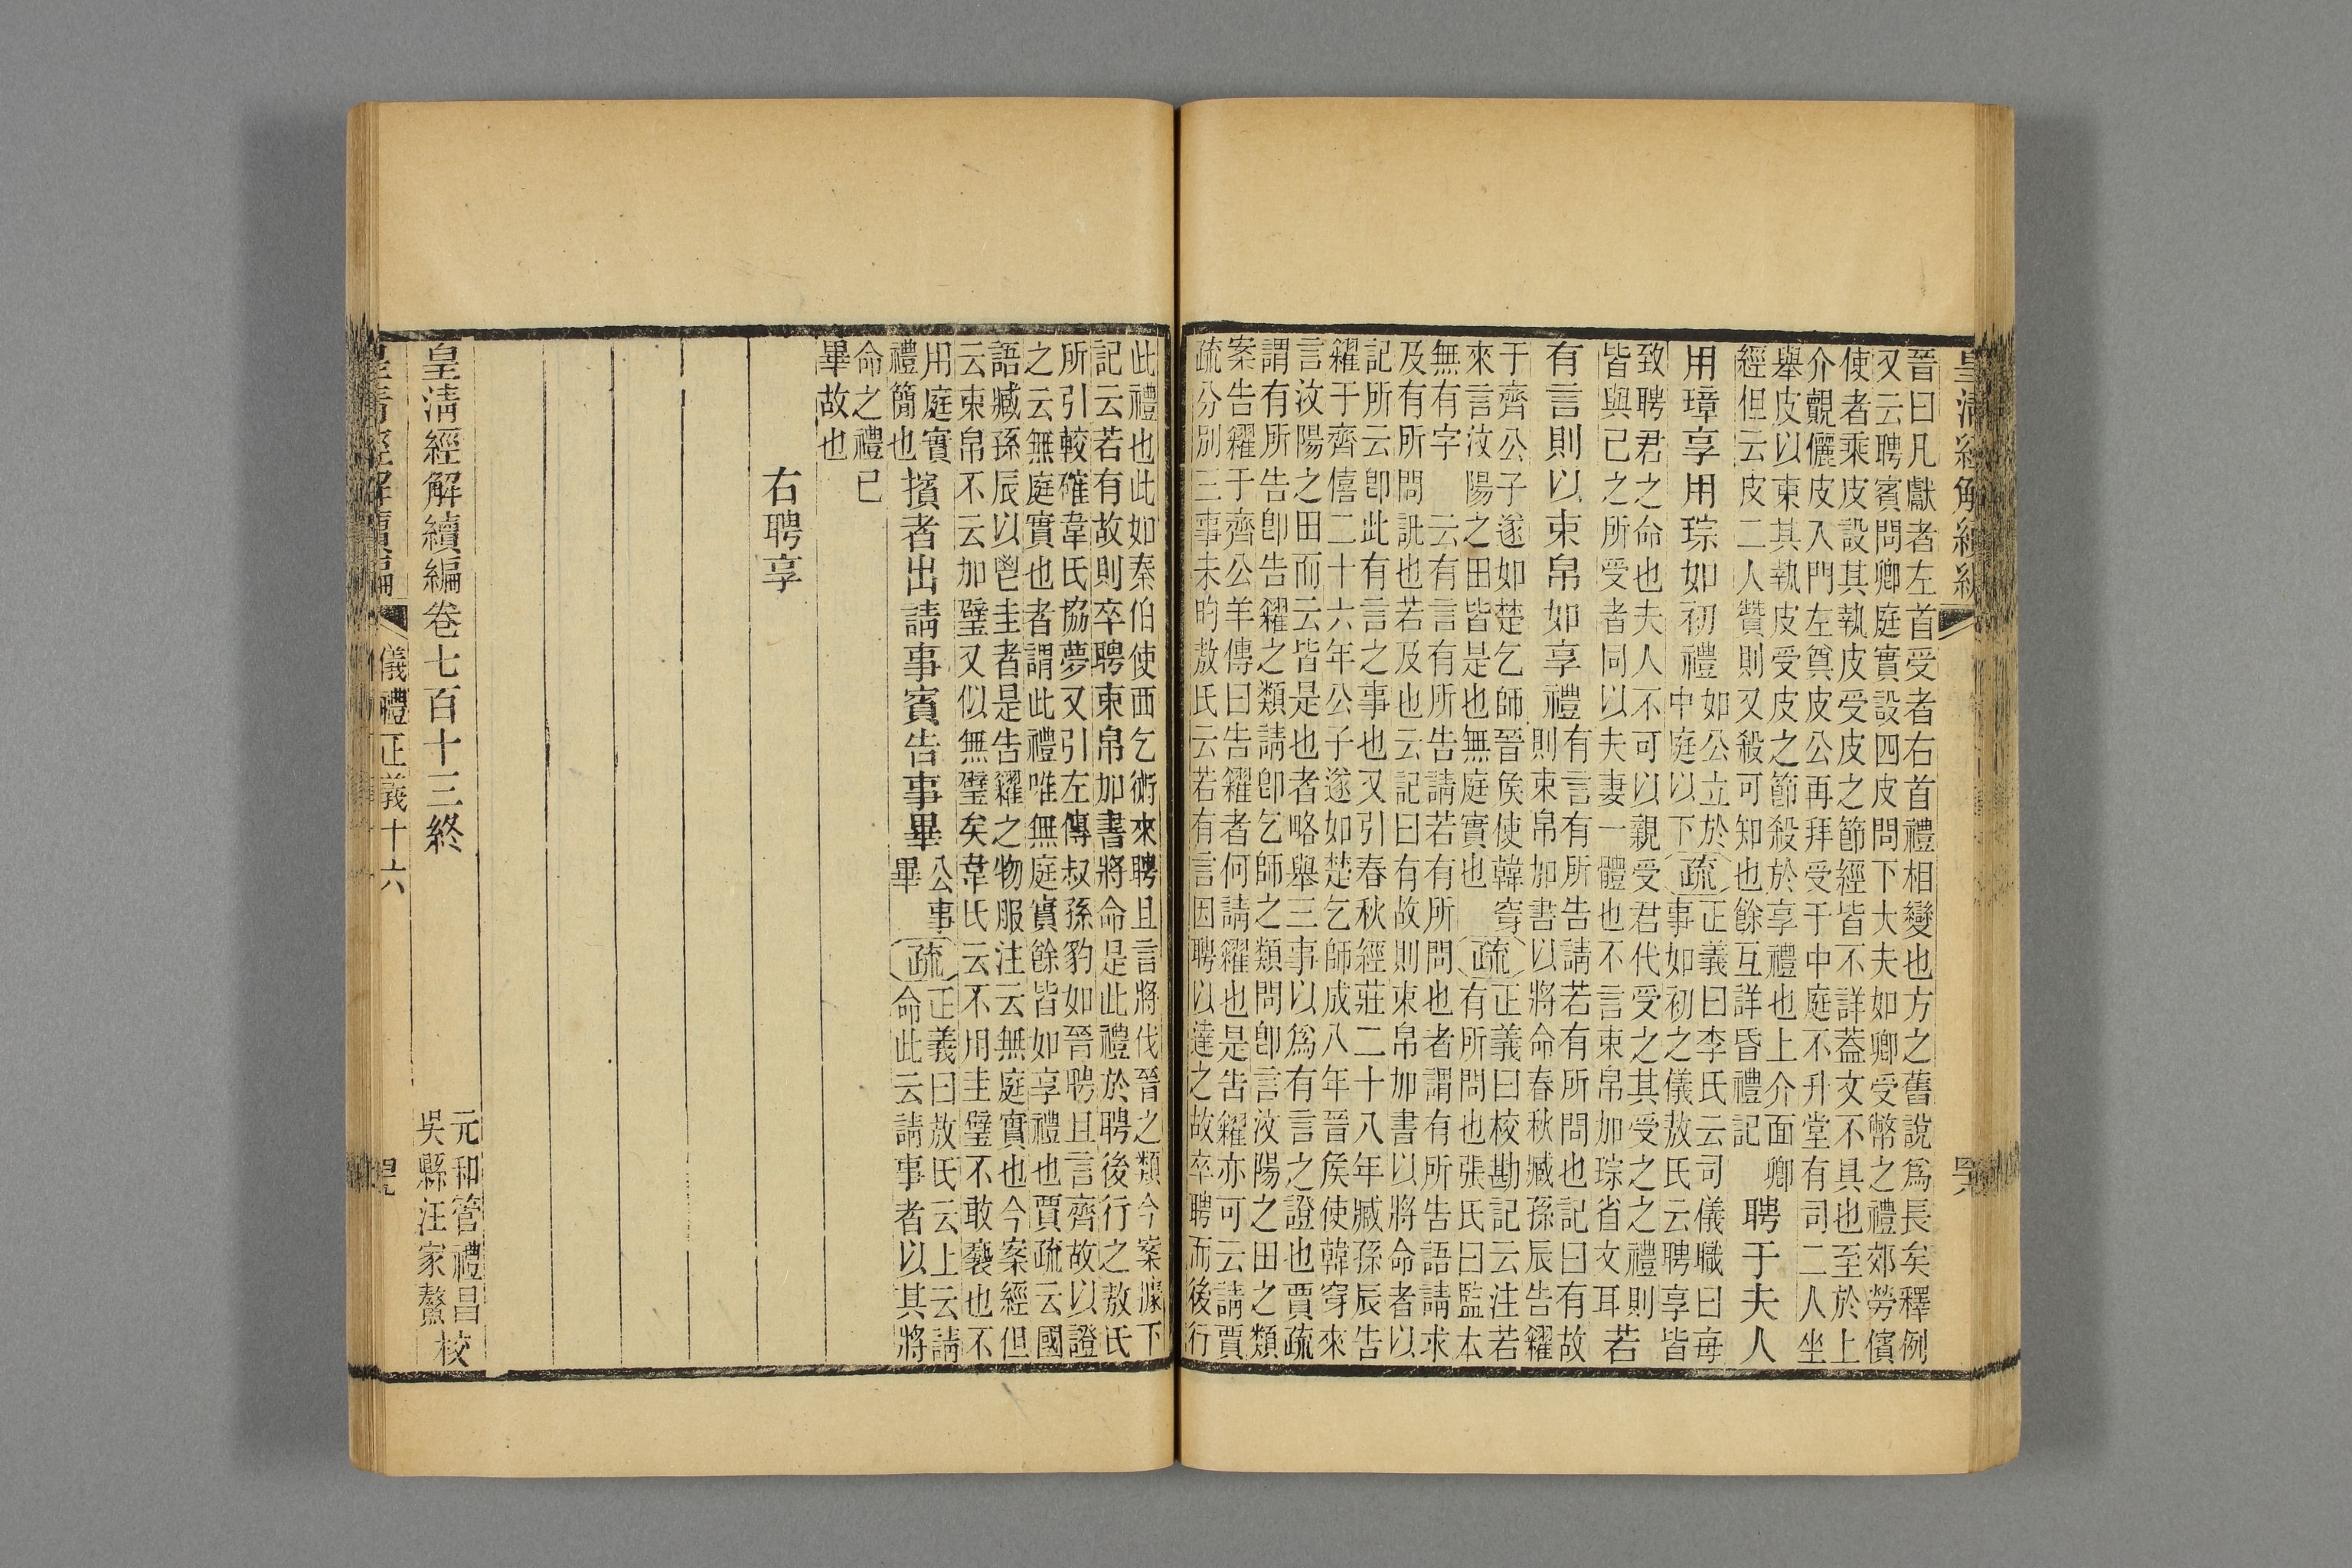 皇清經解續編
晉曰凡獻者左首受者右首禮相變也方之舊說爲長矣釋例
又云聘賓問卿庭實設四皮問下大夫如卿受幣之禮郊勞儐
使者乘皮設其執皮受皮之節經皆不詳蓋文不具也至於上
介覿儷皮入門左奠皮公再拜受于中庭不升堂有司二人坐
舉皮以東其執皮受皮之節殺於享禮也上介面卿
經但云皮二人贊則又殺可知也餘互詳昏禮記
聘于夫人
用璋享用琮如初禮
如公立於
中庭以下
疏
正義曰李氏云司儀職曰每
事如初之儀敖氏云聘享皆
致聘君之命也夫人不可以親受君代受之其受之之禮則
皆與已之所受者同以夫妻一體也不言束帛加琮省文耳
若
有言則以束帛如享禮
有言有所告請若有所問也記曰有故
則束帛加書以將命春秋臧孫辰告糴
于齊公子遂如楚乞師晉矦使韓穿
來言汶陽之田皆是也無庭實也
疏
正義曰校勘記云注若
有所問也張氏曰監本
無有字　云有言有所告請若有所問也者謂有所告語請求
及有所問訊也若及也云記曰有故則束帛加書以將命者以
記所云卽此有言之事也又引春秋經莊二十八年臧孫辰告
糴于齊僖二十六年公子遂如楚乞師成八年晉矦使韓穿來
言汶陽之田而云皆是也者略舉三事以爲有言之證也賈疏
謂有所告卽告糴之類請卽乞師之類問卽言汶陽之田之類
案告糴于齊公羊傳曰告糴者何請糴也是告糴亦可云請賈
疏分別三事未昀敖氏云若有言因聘以達之故卒聘而後行
此禮也此如秦伯使西乞術來聘且言將伐晉之類今案據下
記云若有故則卒聘束帛加書將命是此禮於聘後行之敖氏
所引較確韋氏協夢又引左傳叔孫豹如晉聘且言齊故以證
之云無庭實也者謂此禮唯無庭實餘皆如享禮也賈疏云國
語臧孫辰以鬯圭者是告糴之物服注云無庭實也今案經但
云束帛不云加璧又似無璧矣韋氏云不用圭璧不敢褻也不
用庭實
禮簡也
擯者出請事賓告事畢
公事
畢
疏
正義曰敖氏云上云請
命此云請事者以其將
命之禮已
畢故也
右聘享
皇清經解續編卷七百十三終
元和管禮昌
吳縣汪家鰲
校
皇清經解續編
儀禮正義十六